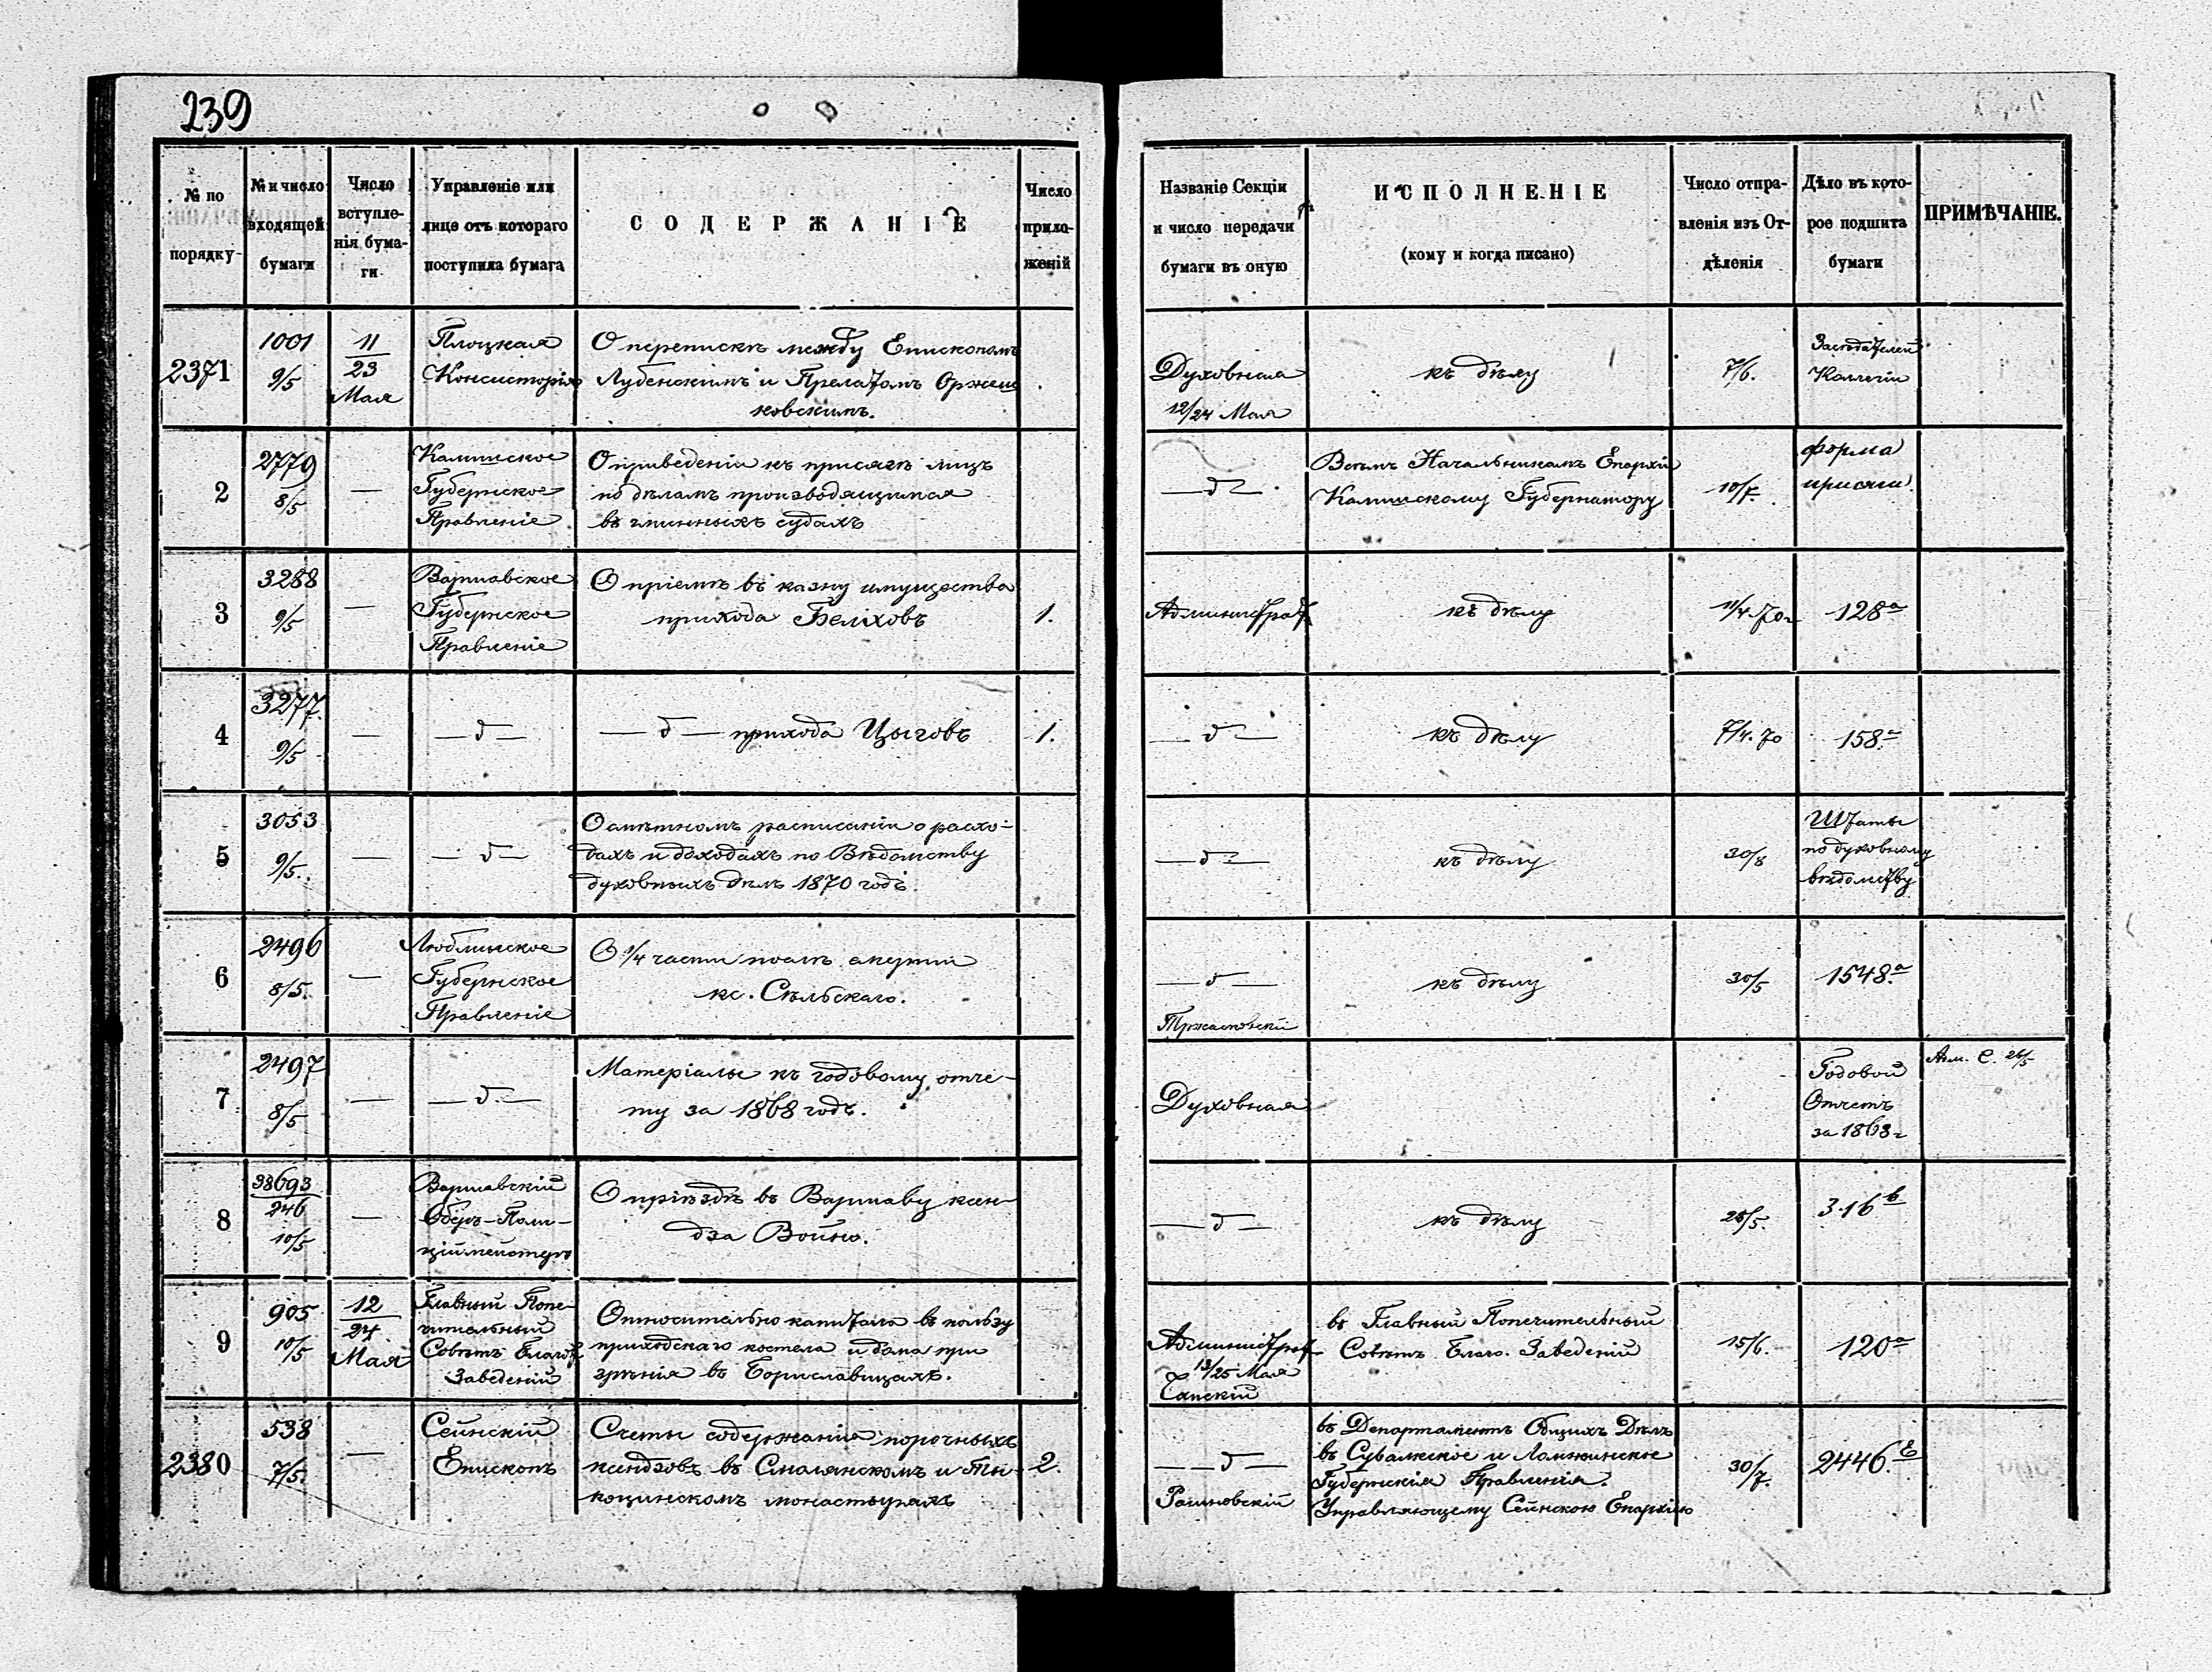 239
№ по
порядку
№ и число
входящей
бумаги
Число
вступле-
нія бума-
ги
Управленіе или
лице отъ котораго
поступила бумага
СОДЕРЖАНІЕ
Число
прило-
женій
Названіе Секціи
и число передачи
бумаги въ оную
ИСПОЛНЕНІЕ
(кому и когда писано)
Число отпра-
вленія изъ От-
дѣленія
Дѣло въ кото-
рое подшита
бумаги
ПРИМѢЧАНІЕ.
2371
1001
9/5
11
23
Мая
Плоцкая
Консисторія
О перепискѣ между Епископомъ
Лубенскимъ и Прелатомъ Оржеш
ковскимъ.
Духовная
12/24 Мая
къ дѣлу
7/6.
Засѣдателей
Коллегіи
2
2779
8/5
—
Калишское
Губернское
Правленіе
О приведеніи къ присягѣ лицъ
по дѣламъ производящимся
въ гминныхъ судахъ
— д —
Всѣмъ Начальникамъ Епархій
Калишскому Губернатору
10/7.
форма
присяги.
3
3288
9/5
—
Варшавское
Губернское
Правленіе
О пріемѣ въ казну имущества
прихода Белховъ
1.
Администрат
къ дѣлу
11/4 70 г
128а
4
3277.
9/5
—
— д —
— д — прихода Цыговъ
1.
— д —
къ дѣлу
7/4. 70
158.а
5
3053
9/5.
—
— д —
О смѣтномъ расписаніи о расхо-
дахъ и доходахъ по Вѣдомству
духовныхъ дѣлъ 1870 годъ.
— д —
къ дѣлу
30/8
Штаты
по духовному
вѣдомству
6
2496
8/5.
—
Люблинское
Губернское
Правленіе
О 1/4 части
кс. Сѣльскаго.
— д —
къ дѣлу
30/5
1548.а
7
2497
8/5
—
— д —
Матеріалы къ годовому отче-
ту за 1868 годъ.
Духовная
Годовой
Отчетъ
за 1868 г
Адм. С. 26/5
8
38693
246
10/5
—
Варшавскій
Оберъ-Поли-
ціймейстеръ
О пріѣздѣ въ Варшаву ксен-
дза Войно.
— д —
къ дѣлу
28/5.
316 b
9
905
10/5
12
24
Мая
Главный Попе-
чительный
Совѣтъ Благот
Заведеній
Относительно капитала въ пользу
приходскаго костела и дома при
зрѣнія въ Бориславицахъ.
Администрат
13/25 Мая
въ Главный Попечительный
Совѣтъ Благо. Заведеній
15/6.
120а
2380
538
7/5.
—
Сейнскій
Епископъ
Счеты содержанія порочныхъ
ксендзовъ въ Смолянскомъ и Ты-
коцинскомъ монастыряхъ
2.
— д —
въ Департаментъ Общихъ Дѣлъ
въ Сувалкское и Ломжинское
Губернскія Правленія.
Управляющему Сейнскою Епархіею
30/7.
2446.Е